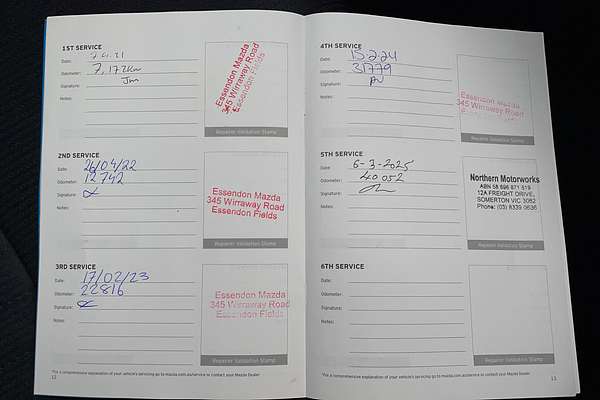 1ST SERVICE
Date: 7.4.21
Odometer: 7,172km
Signature: Jm
Notes:
Essendon Mazda
345 Wirraway Road
Essendon Fields
Repairer Validation Stamp
2ND SERVICE
Date: 26/04/22
Odometer: 12742
Signature:
Notes:
Essendon Mazda
345 Wirraway Road
Essendon Fields
Repairer Validation Stamp
3RD SERVICE
Date: 17/02/23
Odometer: 22816
Signature:
Notes:
Essendon Mazda
345 Wirraway Road
Essendon Fields
Repairer Validation Stamp
*For a comprehensive explanation of your vehicle's servicing go to mazda.com.au/service or contact your Mazda Dealer
12
4TH SERVICE
Date: 15.2.24
Odometer: 31779
Signature:
Notes:
Essendon Mazda
345 Wirraway Road
Essendon Fields
Repairer Validation Stamp
5TH SERVICE
Date: 6-3-2025
Odometer: 40052
Signature:
Notes:
Northern Motorworks
ABN 58 696 871 519
12A FREIGHT DRIVE,
SOMERTON VIC 3062
Phone: (03) 8339 0636
Repairer Validation Stamp
6TH SERVICE
Date:
Odometer:
Signature:
Notes:
Repairer Validation Stamp
*For a comprehensive explanation of your vehicle's servicing go to mazda.com.au/service or contact your Mazda Dealer
13